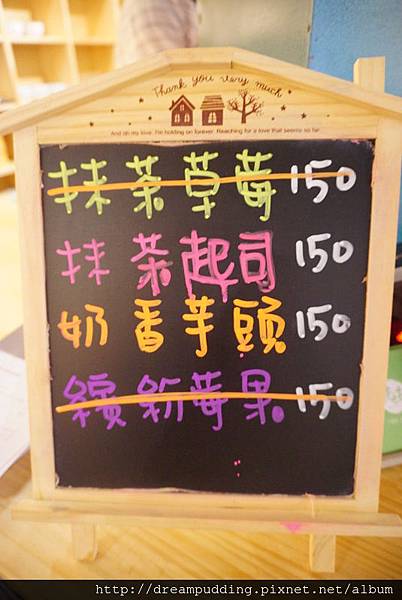 Thank you very much
And oh my love. I'm holding on forever. Reaching for a love that seems so far.
抹茶草莓 150
抹茶起司 150
奶香芋頭 150
繽紛莓果 150
http://dreampudding.pixnet.net/album